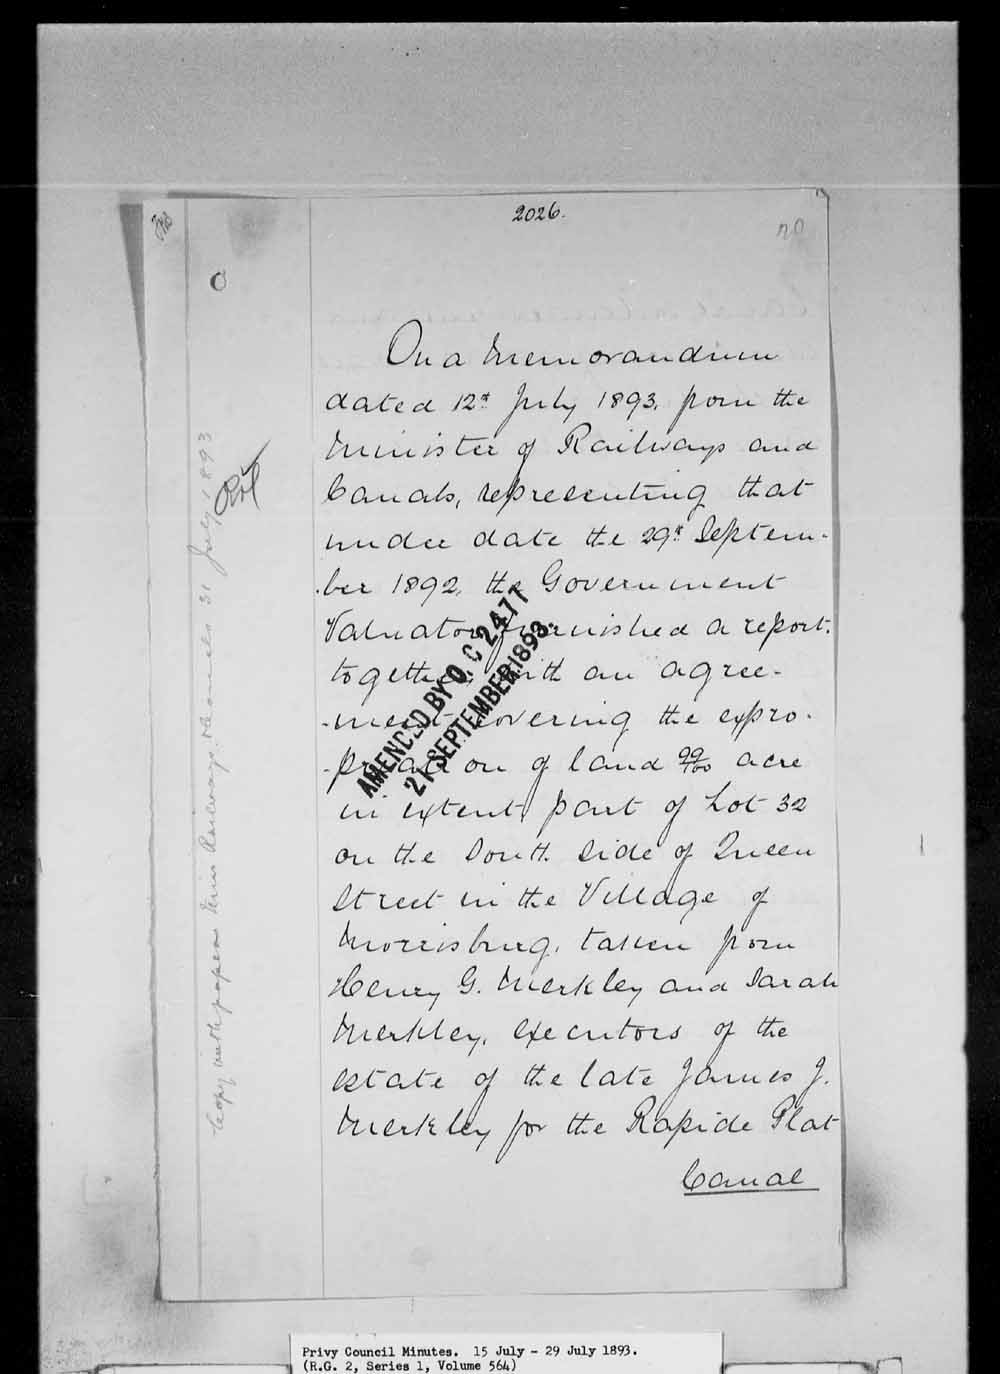 2026.
On a Memorandum
dated 12th July 1893, from the
Minister of Railways and
Canals, representing that
under date the 29th Septem-
-ber 1892, the Government
Valuator furnished a report,
together with an agree-
-ment covering the expro-
-priation of land 99/100 acre
in extent, part of Lot 32
on the South side of Queen
Street in the Village of
Morrisburg, taken from
Henry G. Merkley and Sarah
Merkley, executors of the
estate of the late James J.
Merkley for the Rapide Plat
Canal
AMENDED BY O.C 2477
21 SEPTEMBER 1893.
Copy with papers Min Railways & Canals 31 July 1893
Privy Council Minutes. 15 July - 29 July 1893.
(R.G. 2, Series 1, Volume 564)